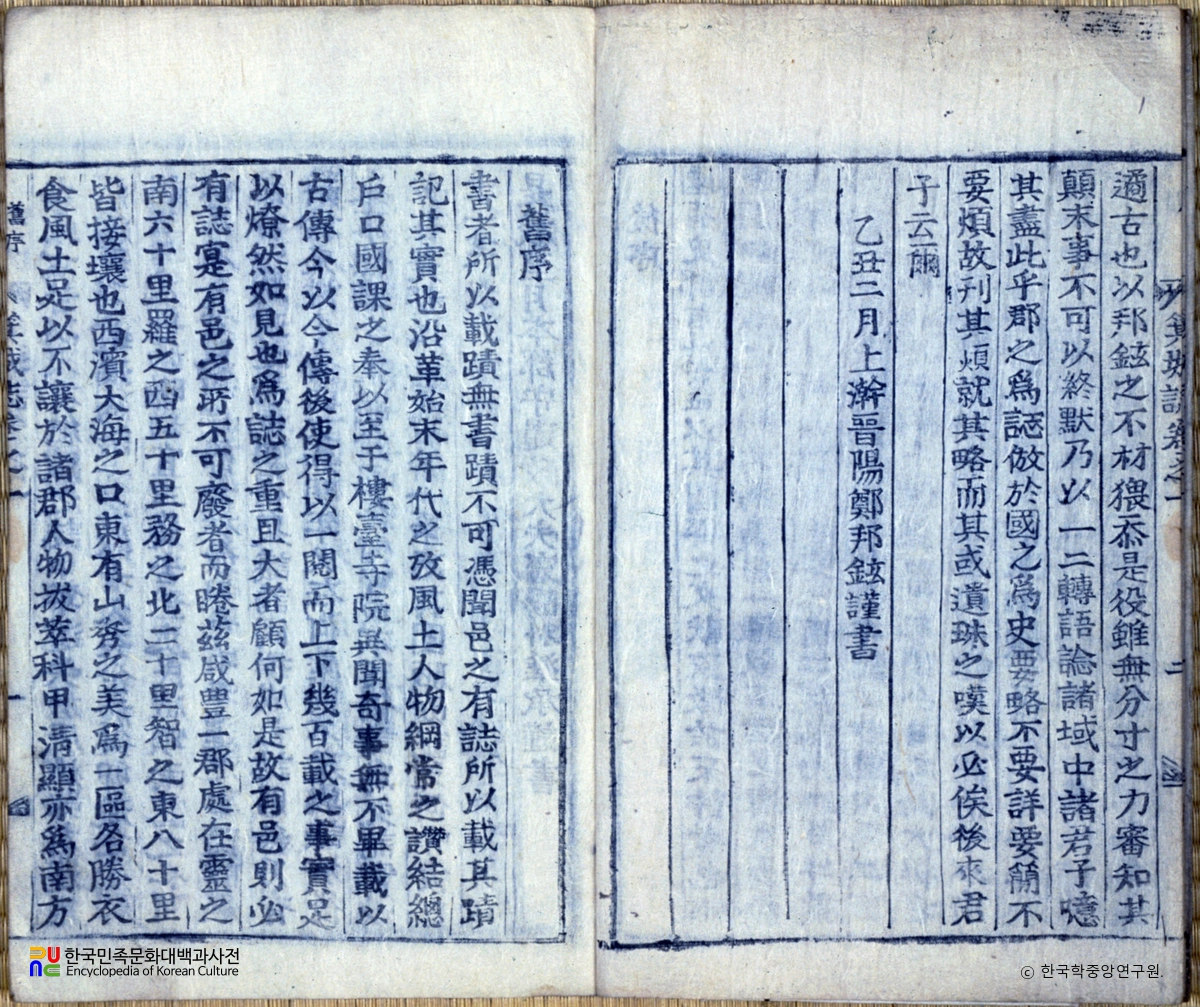 適古也以邦鉉之不材猥忝是役雖無分寸之力審知其
顛末事不可以終默乃以一二轉語諗諸域中諸君子噫
其盡此乎郡之爲誌倣於國之爲史要略不要詳要簡不
要煩故刊其煩就其略而其或遺珠之嘆以必俟後來君
子云爾
乙丑二月上澣晉陽鄭邦鉉謹書
舊序
書者所以載蹟無書蹟不可憑聞邑之有誌所以載其蹟
記其實也沿革始末年代之攷風土人物綱常之讚結總
戶口國課之奉以至于樓臺寺院異聞奇事無不畢載以
古傳今以今傳後使得以一閱而上下幾百載之事實足
以燎然如見也爲誌之重且大者顧何如是故有邑則必
有誌寔有邑之所不可廢者而睠茲咸豊一郡處在靈之
南六十里羅之西五十里務之北二十里智之東八十里
皆接壤也西濱大海之口東有山秀之美爲一區名勝衣
食風土足以不讓於諸郡人物拔萃科甲淸顯亦爲南方
舊序
한국민족문화대백과사전
Encyclopedia of Korean Culture
© 한국학중앙연구원.